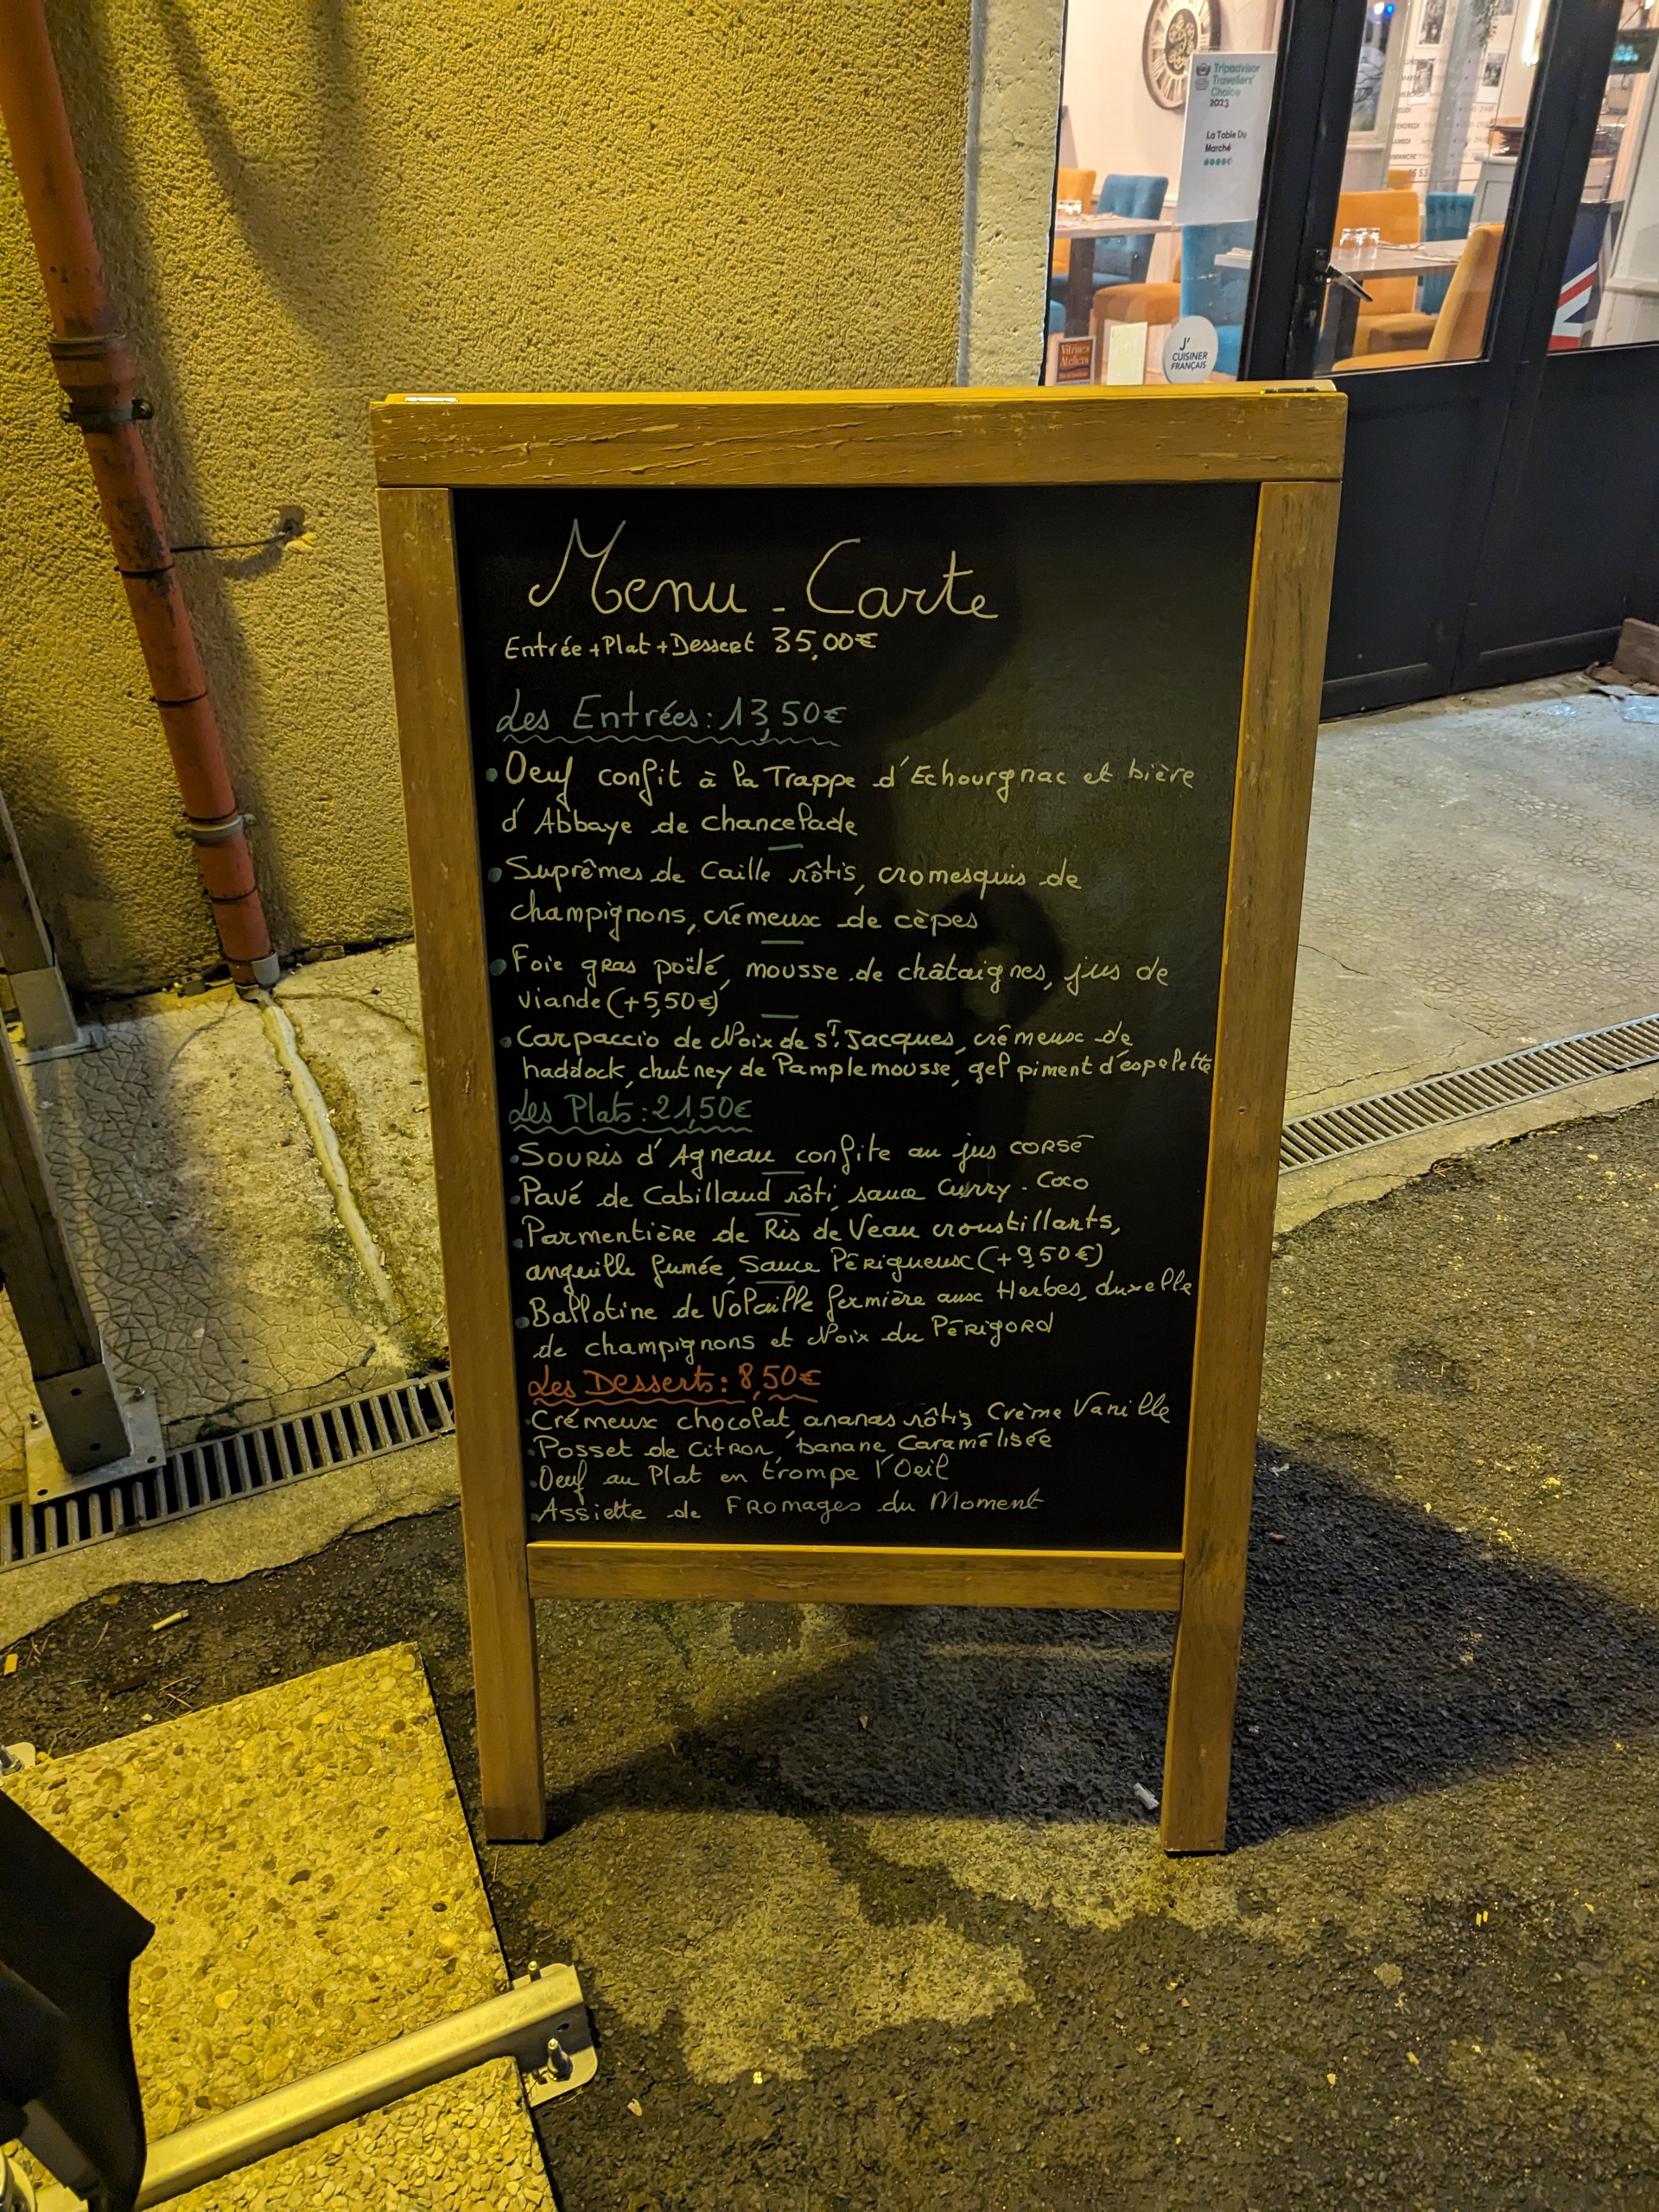 Tripadvisor
Travellers'
Choice
2023
La Table Du
Marché
JEUDI
VENDREDI
SAMEDI
DIMANCHE
Vitrines
Ateliers
J'
CUISINER
FRANÇAIS
Menu - Carte
Entrée + Plat + Dessert 35,00€
Les Entrées : 13,50€
• Oeuf confit à la Trappe d'Echourgnac et bière
d'Abbaye de Chancelade
• Suprêmes de Caille rôtis, cromesquis de
champignons, crémeux de cèpes
• Foie gras poëlé, mousse de châtaignes, jus de
viande (+5,50€)
• Carpaccio de Noix de St Jacques, crémeux de
haddock, chutney de Pamplemousse, gel piment d'espelette
Les Plats : 21,50€
• Souris d'Agneau confite au jus corsé
• Pavé de Cabillaud rôti, sauce Curry - Coco
• Parmentière de Ris de Veau croustillants,
anguille fumée, Sauce Périgueux (+9,50€)
• Ballotine de Volaille fermière aux Herbes, duxelle
de champignons et Noix du Périgord
Les Desserts : 8,50€
• Crémeux chocolat, ananas rôtis, Crème Vanille
• Posset de Citron, banane Caramélisée
• Oeuf au Plat en trompe l'Oeil
• Assiette de Fromages du Moment